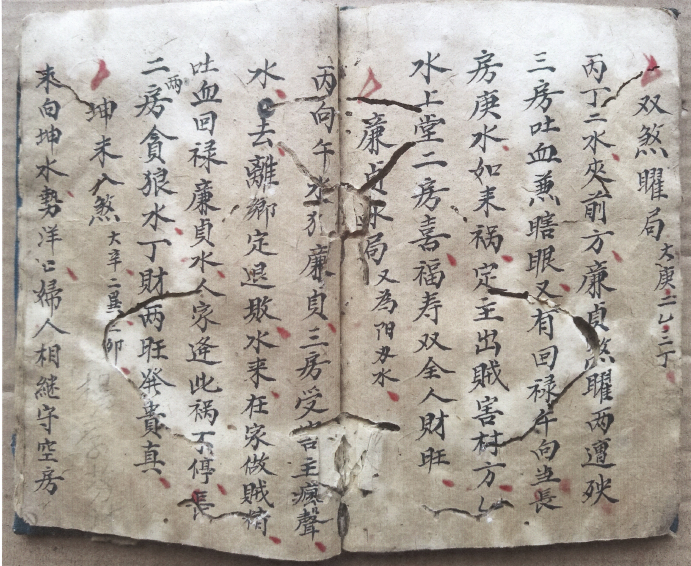 双煞曜局 大庚二乙三丁
丙丁二水夾前方廉貞煞曜両遭殃
三房吐血兼瞎眼又有回禄午向当長
房庚水如来祸定主出賊害村方
水上堂二房喜福寿双全人財旺
廉貞水局 又為阳刃水
丙向午水犯廉貞三房受 主瘋聲
水去離鄉定退敗水来在家做賊
吐血回禄廉貞水人家逢此祸不停長
二房貪狼水丁財両旺発貴真
両
坤未八煞 大辛二巽三卯
来向坤水勢洋口婦人相継守空房